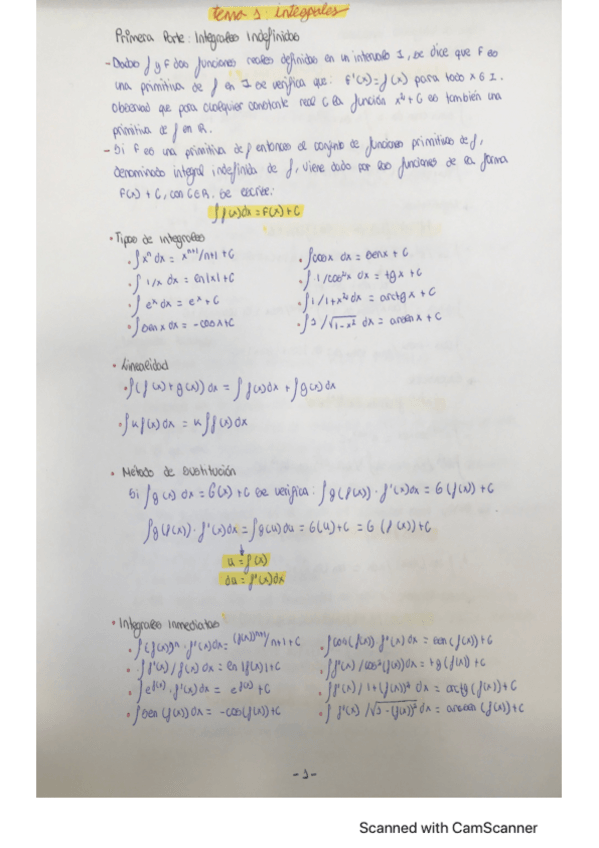 tema 1: integrales
Primera Parte: Integrales Indefinidas
- Dadas f y F dos funciones reales definidas en un intervalo I, se dice que F es
una primitiva de f en I se verifica que: F'(x) = f(x) para todo x ∈ I.
Observad que para cualquier constante real C la función x² + C es también una
primitiva de f en R.
- Si F es una primitiva de f entonces el conjunto de funciones primitivas de f,
denominado integral indefinida de f, viene dado por las funciones de la forma
F(x) + C, con C∈R. Se escribe:
∫f(x)dx = F(x) + C
· Tipos de integrales
· ∫x^n dx = x^(n+1)/n+1 + C
· ∫1/x dx = ln|x| + C
· ∫e^x dx = e^x + C
· ∫sen x dx = -cosx + C
· ∫cosx dx = senx + C
· ∫1/cos²x dx = tgx + C
· ∫1/1+x² dx = arctgx + C
· ∫1/√1-x² dx = arsen x + C
· Linealidad
· ∫(f(x) + g(x)) dx = ∫f(x)dx + ∫g(x)dx
· ∫k f(x)dx = k∫f(x)dx
· Método de Sustitución
Si ∫g(x) dx = G(x) + C se verifica: ∫g(f(x)) · f'(x)dx = G(f(x)) + C
∫g(f(x)) · f'(x)dx = ∫g(u)du = G(u) + C = G(f(x)) + C
↓
u = f(x)
du = f'(x)dx
· Integrales inmediatas
· ∫(f(x))^n · f'(x)dx = (f(x))^(n+1)/n+1 + C
· ∫f'(x)/f(x) dx = ln|f(x)| + C
· ∫e^f(x) · f'(x)dx = e^f(x) + C
· ∫sen(f(x))dx = -cos(f(x)) + C
· ∫cos(f(x)) · f'(x)dx = sen(f(x)) + C
· ∫f'(x)/cos²(f(x))dx = tg(f(x)) + C
· ∫f'(x)/1+(f(x))² dx = arctg(f(x)) + C
· ∫f'(x)/√1-(f(x))² dx = arcsen(f(x)) + C
-1-
Scanned with CamScanner